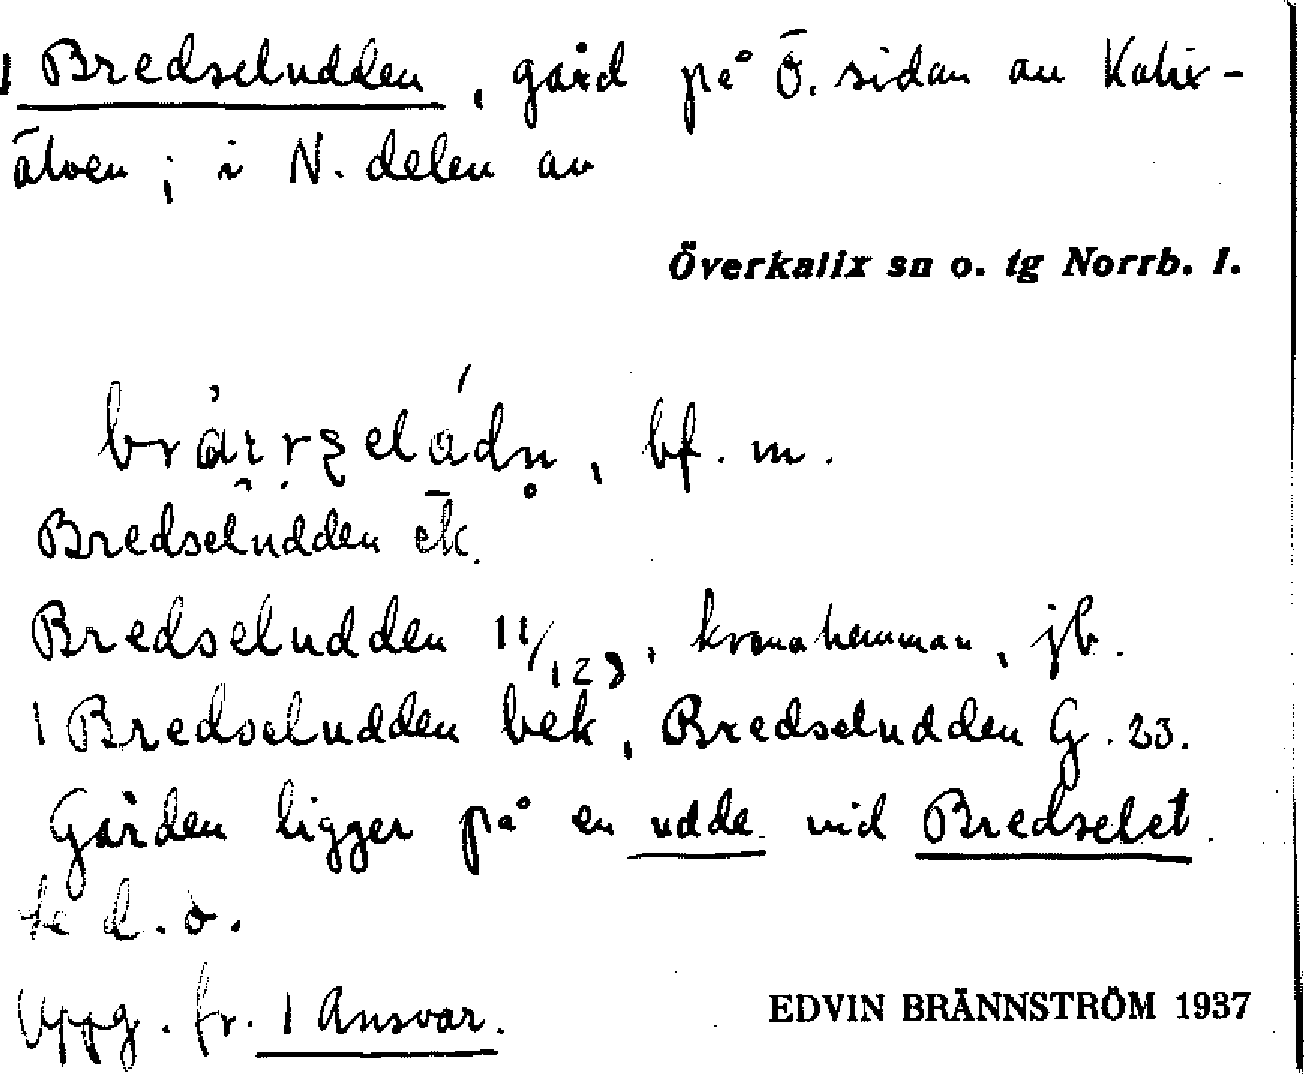 1 Bredseludden, gård på Ö. sidan av Kalix-
älven; i N. delen av
Överkalix sn o. tg Norrb. l.
bf. m.
Bredseludden ek.
Bredseludden 11/128, kronahemman, jb.
1 Bredseludden bek, Bredseludden G. 23.
Gården ligger på en udde vid Bredselet.
se d. o.
Uppg. fr. 1 Ansvar.
EDVIN BRÄNNSTRÖM 1937